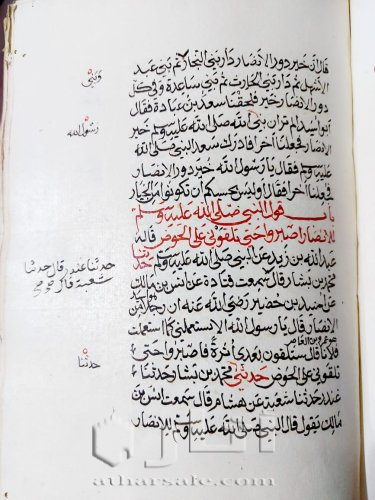 قال ان خير دور الانصار دار بني النجار ثم بني عبد
الاشهل ثم دار بني الحارث ثم بني ساعدة وفي كل
دور الانصار خير فلحقنا سعد بن عبادة فقال
ابو اسيد الم تر ان نبي الله صلى الله عليه وسلم خير
الانصار فجعلنا اخرا فادرك سعد النبي صلى الله
عليه وسلم فقال يا رسول الله خير دور الانصار
فجعلنا اخرا فقال او ليس بحسبكم ان تكونوا من الخيار
باب قول النبي صلى الله عليه وسلم
للانصار اصبروا حتى تلقوني على الحوض قاله
عبد الله بن زيد عن النبي صلى الله عليه وسلم حدثنا
محمد بن بشار قال سمعت قتادة عن انس بن مالك
عن اسيد بن حضير رضي الله عنه ان رجلا من
الانصار قال يا رسول الله الا تستعملني كما استعملت
فلانا قال ستلقون بعدي اثرة فاصبروا حتى
تلقوني على الحوض حدثني محمد بن بشار حدثنا
غندر حدثنا شعبة عن هشام قال سمعت انس بن
مالك يقول قال النبي صلى الله عليه وسلم للانصار
رسول الله
حدثنا غندر قال حدثنا
شعبة قال صح
حدثنا
آثار
atharsafe.com